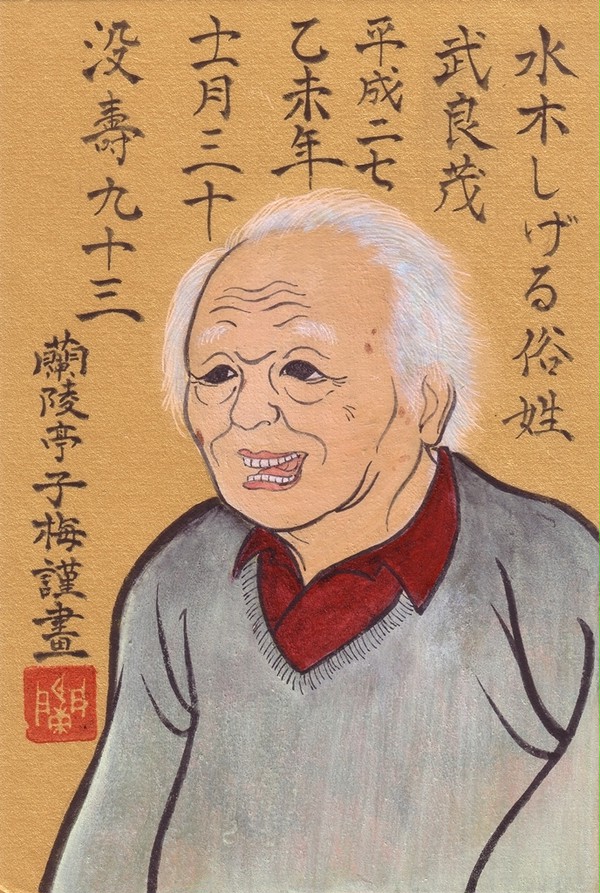 水木しげる俗姓
武良茂
平成二七
乙未年
十一月三十
没壽九十三
蘭陵亭子梅謹畫